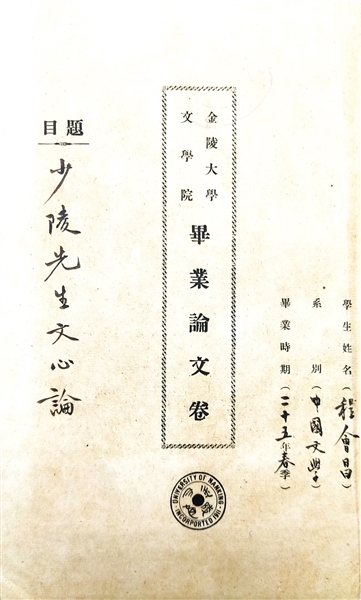 學生姓名(程會昌)
系別(中國文學)
畢業時期(二十五年春季)
金陵大學
文學院
畢業論文卷
題目
少陵先生文心論
UNIVERSITY OF NANKING
INCORPORATED 1911